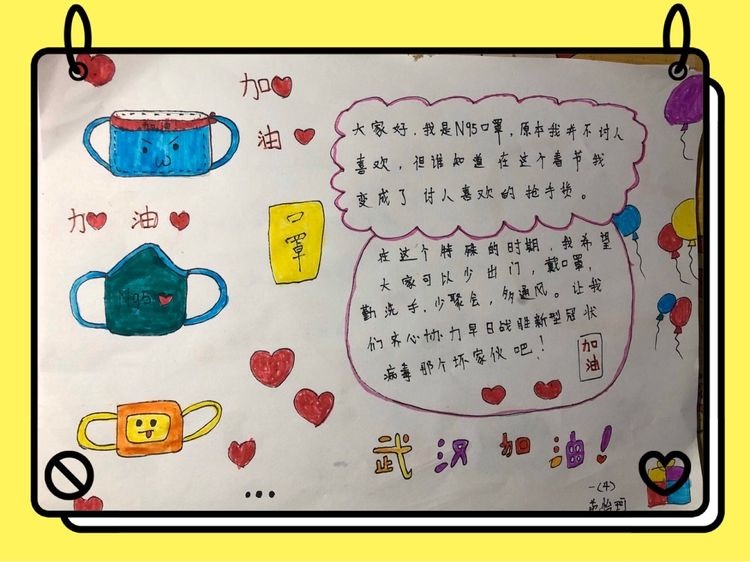 加
油
加油
力 油
N95
口
罩
大家好，我是N95口罩，原本我并不讨人
喜欢，但谁知道在这个春节我
变成了讨人喜欢的抢手货。
在这个特殊的时期，我希望
大家可以少出门，戴口罩，
勤洗手，少聚会，多通风。让我
们齐心协力早日战胜新型冠状
病毒那个坏家伙吧！
加
油
武汉加油！
一(4)